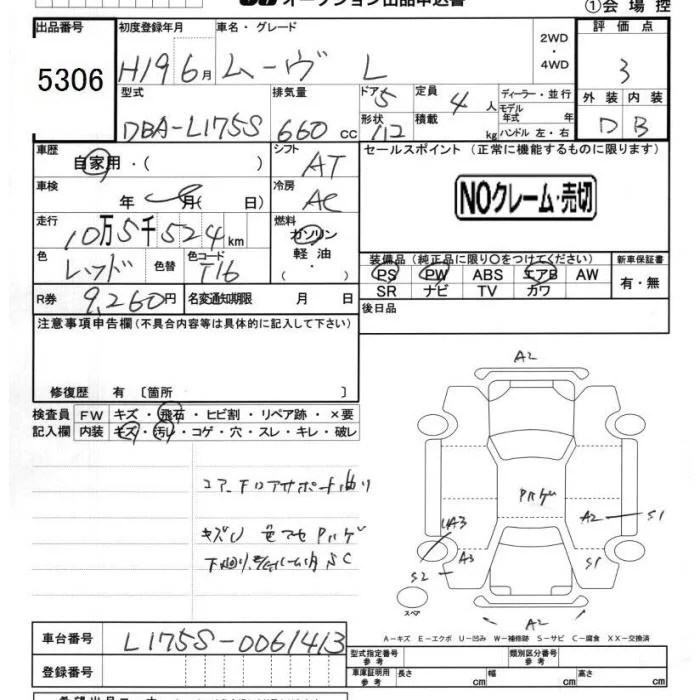 オークション出品申込書
①会場控
出品番号
5306
初度登録年月
H19 6月
車名・グレード
ムーヴ L
2WD
・
4WD
評価点
3
型式
DBA-L175S
排気量
660 cc
ドア 5
形状
定員 4 人
積載 kg
ディーラー・並行
モデル
年式 年
ハンドル 左・右
外装 内装
D B
車歴
自家用・( )
シフト
AT
車検
年 月( 日)
冷房
AC
走行
10万5千524km
燃料
ガソリン
軽油・
( ・ )
色
レッド
色替
色コード
T16
R券 9,260円
名変通知期限 月 日
セールスポイント(正常に機能するものに限ります)
NOクレーム・売切
装備品(純正品に限り○をつけてください)
PS PW ABS エアB AW
SR ナビ TV カワ
新車保証書
有・無
後日品
注意事項申告欄(不具合内容等は具体的に記入して下さい)
修復歴 有 〔箇所 〕
検査員
記入欄
FW キズ・飛石・ヒビ割・リペア跡・×要
内装 キズ・汚レ・コゲ・穴・スレ・キレ・破レ
コアードロアサポート曲り
キズU 色アセ
A2
A2 S1
A3
A3
S2
S1
A2
スペア
A-キズ E-エクボ U-凹み W-補修跡 S-サビ C-腐食 XX-交換済
車台番号
L175S-0061413
登録番号
型式指定番号
参考
類別区分番号
参考
車庫証明用
参考
長さ cm
幅 cm
高さ cm